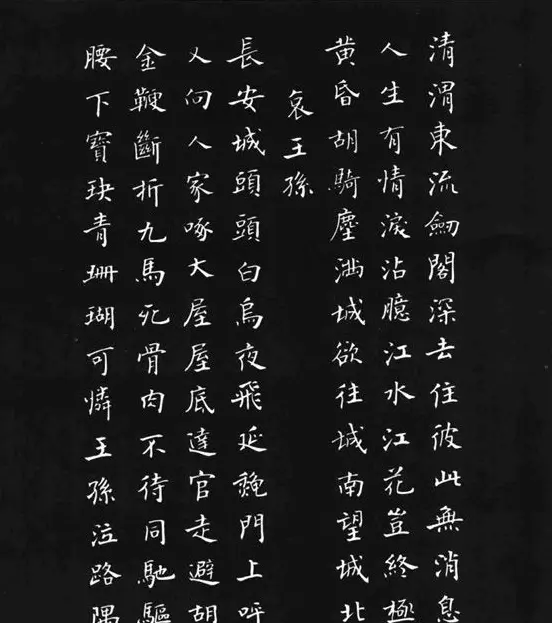 清渭東流劒閣深去住彼此無消息
人生有情淚沾臆江水江花豈終極
黄昏胡騎塵滿城欲往城南望城北
哀王孫
長安城頭頭白烏夜飛延穐門上呼
又向人家啄大屋屋底達官走避胡
金鞭斷折九馬死骨肉不待同馳驅
腰下寶玦青珊瑚可憐王孫泣路隅